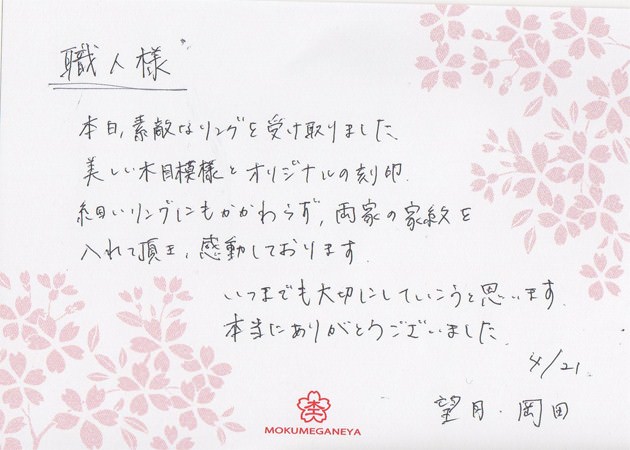 職人様
本日、素敵なリングを受け取りました。
美しい木目模様とオリジナルの刻印.
細いリングにもかかわらず、両家の家紋を
入れて頂き、感動しております.
いつまでも大切にしていこうと思います.
本当にありがとうございました.
4/21.
望月・岡田
MOKUMEGANEYA